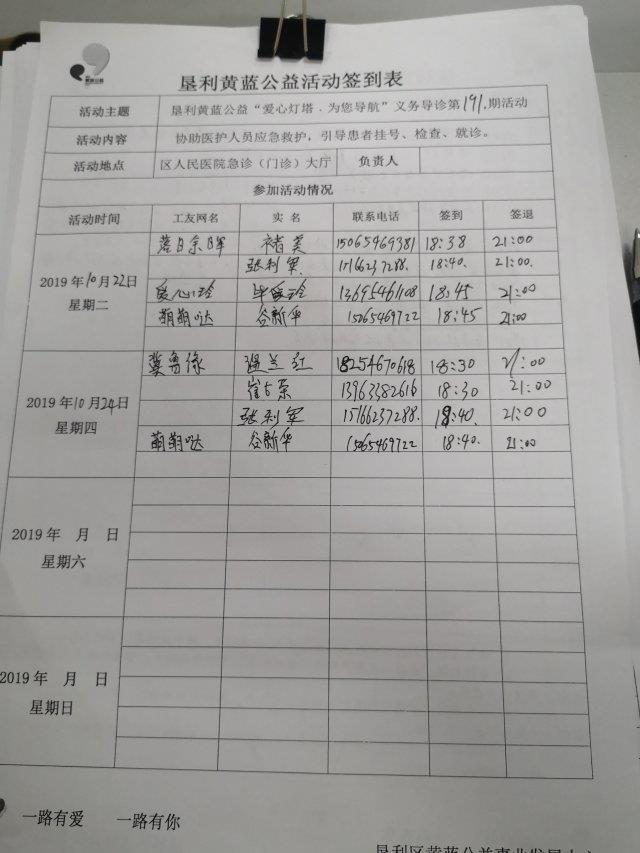 垦利黄蓝公益活动签到表
活动主题 垦利黄蓝公益“爱心灯塔．为您导航”义务导诊第191.期活动
活动内容 协助医护人员应急救护，引导患者挂号、检查、就诊。
活动地点 区人民医院急诊（门诊）大厅 负责人
参加活动情况
活动时间 工友网名 实 名 联系电话 签到 签退
2019年10月22日
星期二
落日余晖 褚美 15065469381 18:38 21:00
张利军 15166237288. 18:40. 21:00.
爱心玲 毕爱玲 13695461108 18:45 21:00
萌萌哒 谷新华 15065469722 18:45 21:00
2019年10月24日
星期四
温兰红 18254670618 18:30 21:00
崔占东 13963382616 18:30 21:00
张利军 15166237288. 18:40. 21:00
萌萌哒 谷新华 15065469722 18:40. 21:00
2019年 月 日
星期六
2019年 月 日
星期日
一路有爱 一路有你
垦利区黄蓝公益事业发展中心